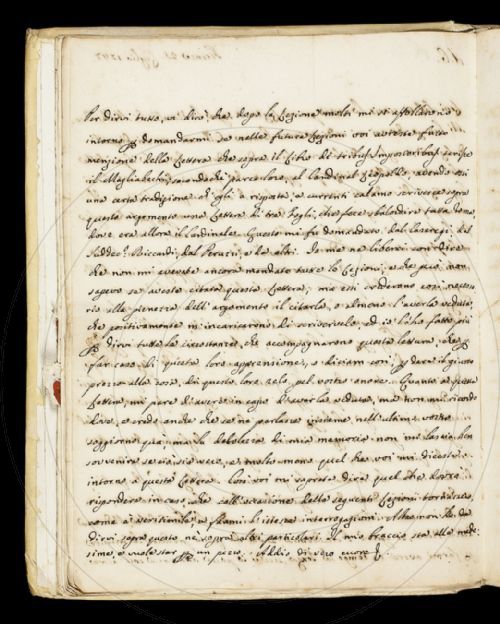 Per dirvi tutto, vi dirò, che dopo la Lezione molti mi si affollarono
intorno p domandarmi, se nelle future Lezioni voi avreste fatto
menzione della Lettera che sopra il Libro de tribus Impostoribus scrisse
il Magliabechi, secondochè parea loro, al Cardinal avendo essi
una certa tradizione ch'egli a risposta, e currenti calamo scrivesse sopra
questo argomento una Lettera di tre fogli, che fece sbalordire tutta Roma
dove era allora il Cardinale. Questo mi fu domandato dal
Suddec.o Riccardi, dal Peruzzi, e da altri. Io me ne liberai con dire
che non mi avevate ancora mandato tutte le Lezioni, e che però non
sapevo se aveste citata questa Lettera, ma essi credevano così necessa
rio alla pienezza dell'argomento il citarla, o almeno l'averla veduta,
che positivamente m'incaricarono di scrivervelo, ed io l'ho fatto più
p dirvi tutte le circostanze che accompagnarono questa lettura, che p
far caso di questa loro apprensione, o diciam così, p dare il giusto
prezzo alla cosa, di questo loro zelo pel vostro onore. Quanto a questa
Lettera, mi pare d'avere in capo d'averla veduta, ma non mi ricordo
dove, e credo anche che se ne parlasse insieme nell'ultimo vostro
soggiorno qua, ma la debolezza di mia memoria non mi lascia ben
sovvenire se ciò sia vero, e molto meno quel che voi mi diceste
intorno a questa Lettera. Così voi mi saprete dire quel che dovrò
rispondere in caso, che coll'occasione delle seguenti Lezioni tornassero,
come è verisimile, a farmi l'istesse interrogazioni. Altro non ho da
dirvi sopra questo, nè sopra altri particolari. Il mio braccio sta alle mede
sime, e vuole star p un pezzo. Addio di vero cuore